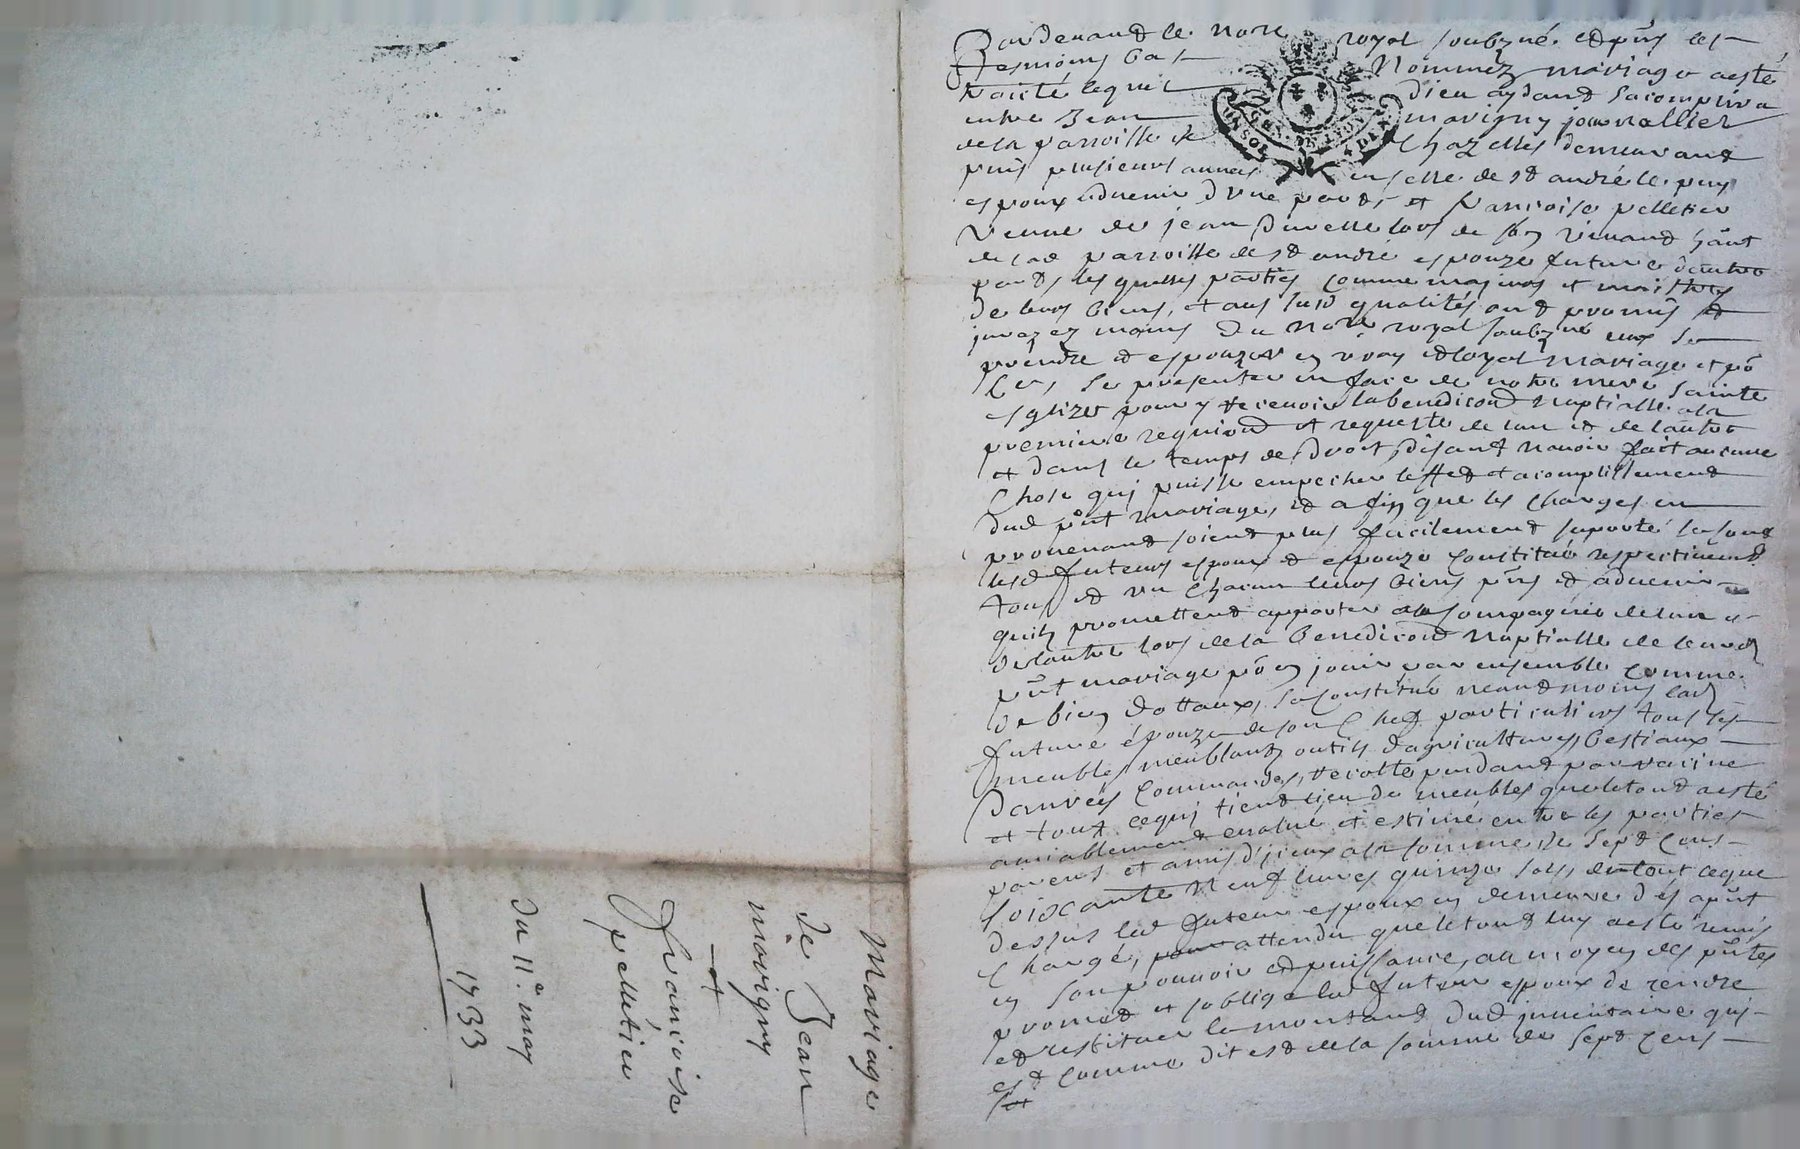 Pardevant le nore royal soubzné et pnts les
tesmoins bas nommez mariage aesté
traicté lequel dieu aydant sacomplira
entre Jean marigny journallier
de la parroisse de Chazelles demeurant
puis plusieurs années en celle de st andré le puy
espoux advenir dune part, et francoise pelletier
veuve de jean du lors de son vivant
de lad parroisse de st andré espouze future dautre
part, les quelles parties comme majeurs et maistres
de leurs biens, et aus susd qualités ont promis et
juré ez mains du nore royal soubzné eux se
prendre et espouzer en vray et loyal mariage et po
se presenter en face de notre mere sainte
esglizes pour y recevoir la benedicond nuptialle ala
premiere requiond et requeste de lun et de lautre
et dans le temps de droit, disant navoir fait aucune
chose qui puisse empecher leffet et acomplissement
dud pnt mariage, et afin que les charges en
provenant soient plus facilement suporté se sont
lesd futeurs espoux et espouze constitué respectivemt
tous et un chacun leurs biens pnts et advenir
quils promettent apporter en la compagnie de lun a
de lautre lors de la benedicond nuptialle de leurd
pnt mariage po en jouir par ensemble comme
de bien dottaux, se constitue neandmoins lad
future épouze de son chef particuliers tous ses
meubles meublant outils dagricultures, bestiaux
danrées commandes, recolte pendant par racine
et tout cequi tient lieu de meubles que le tout aesté
amiablement evalué et estimé entre les parties
parens et amis dicieux ala somme de sept cens
soixante neuf livres quinze sols, de tout ceque
dessus led futeur espoux en demeure des apnt
chargé, attendu que le tout luy aesté remis
en son pouvoir et puissance, au moyen des pntes
promet et soblige led futeur espoux de rendre
et restituer le montant dud inventaire qui
est comme dit est de la somme de sept cens
Mariage
de Jean
marigny
et
francoise
pelletier
du 11e may
1733